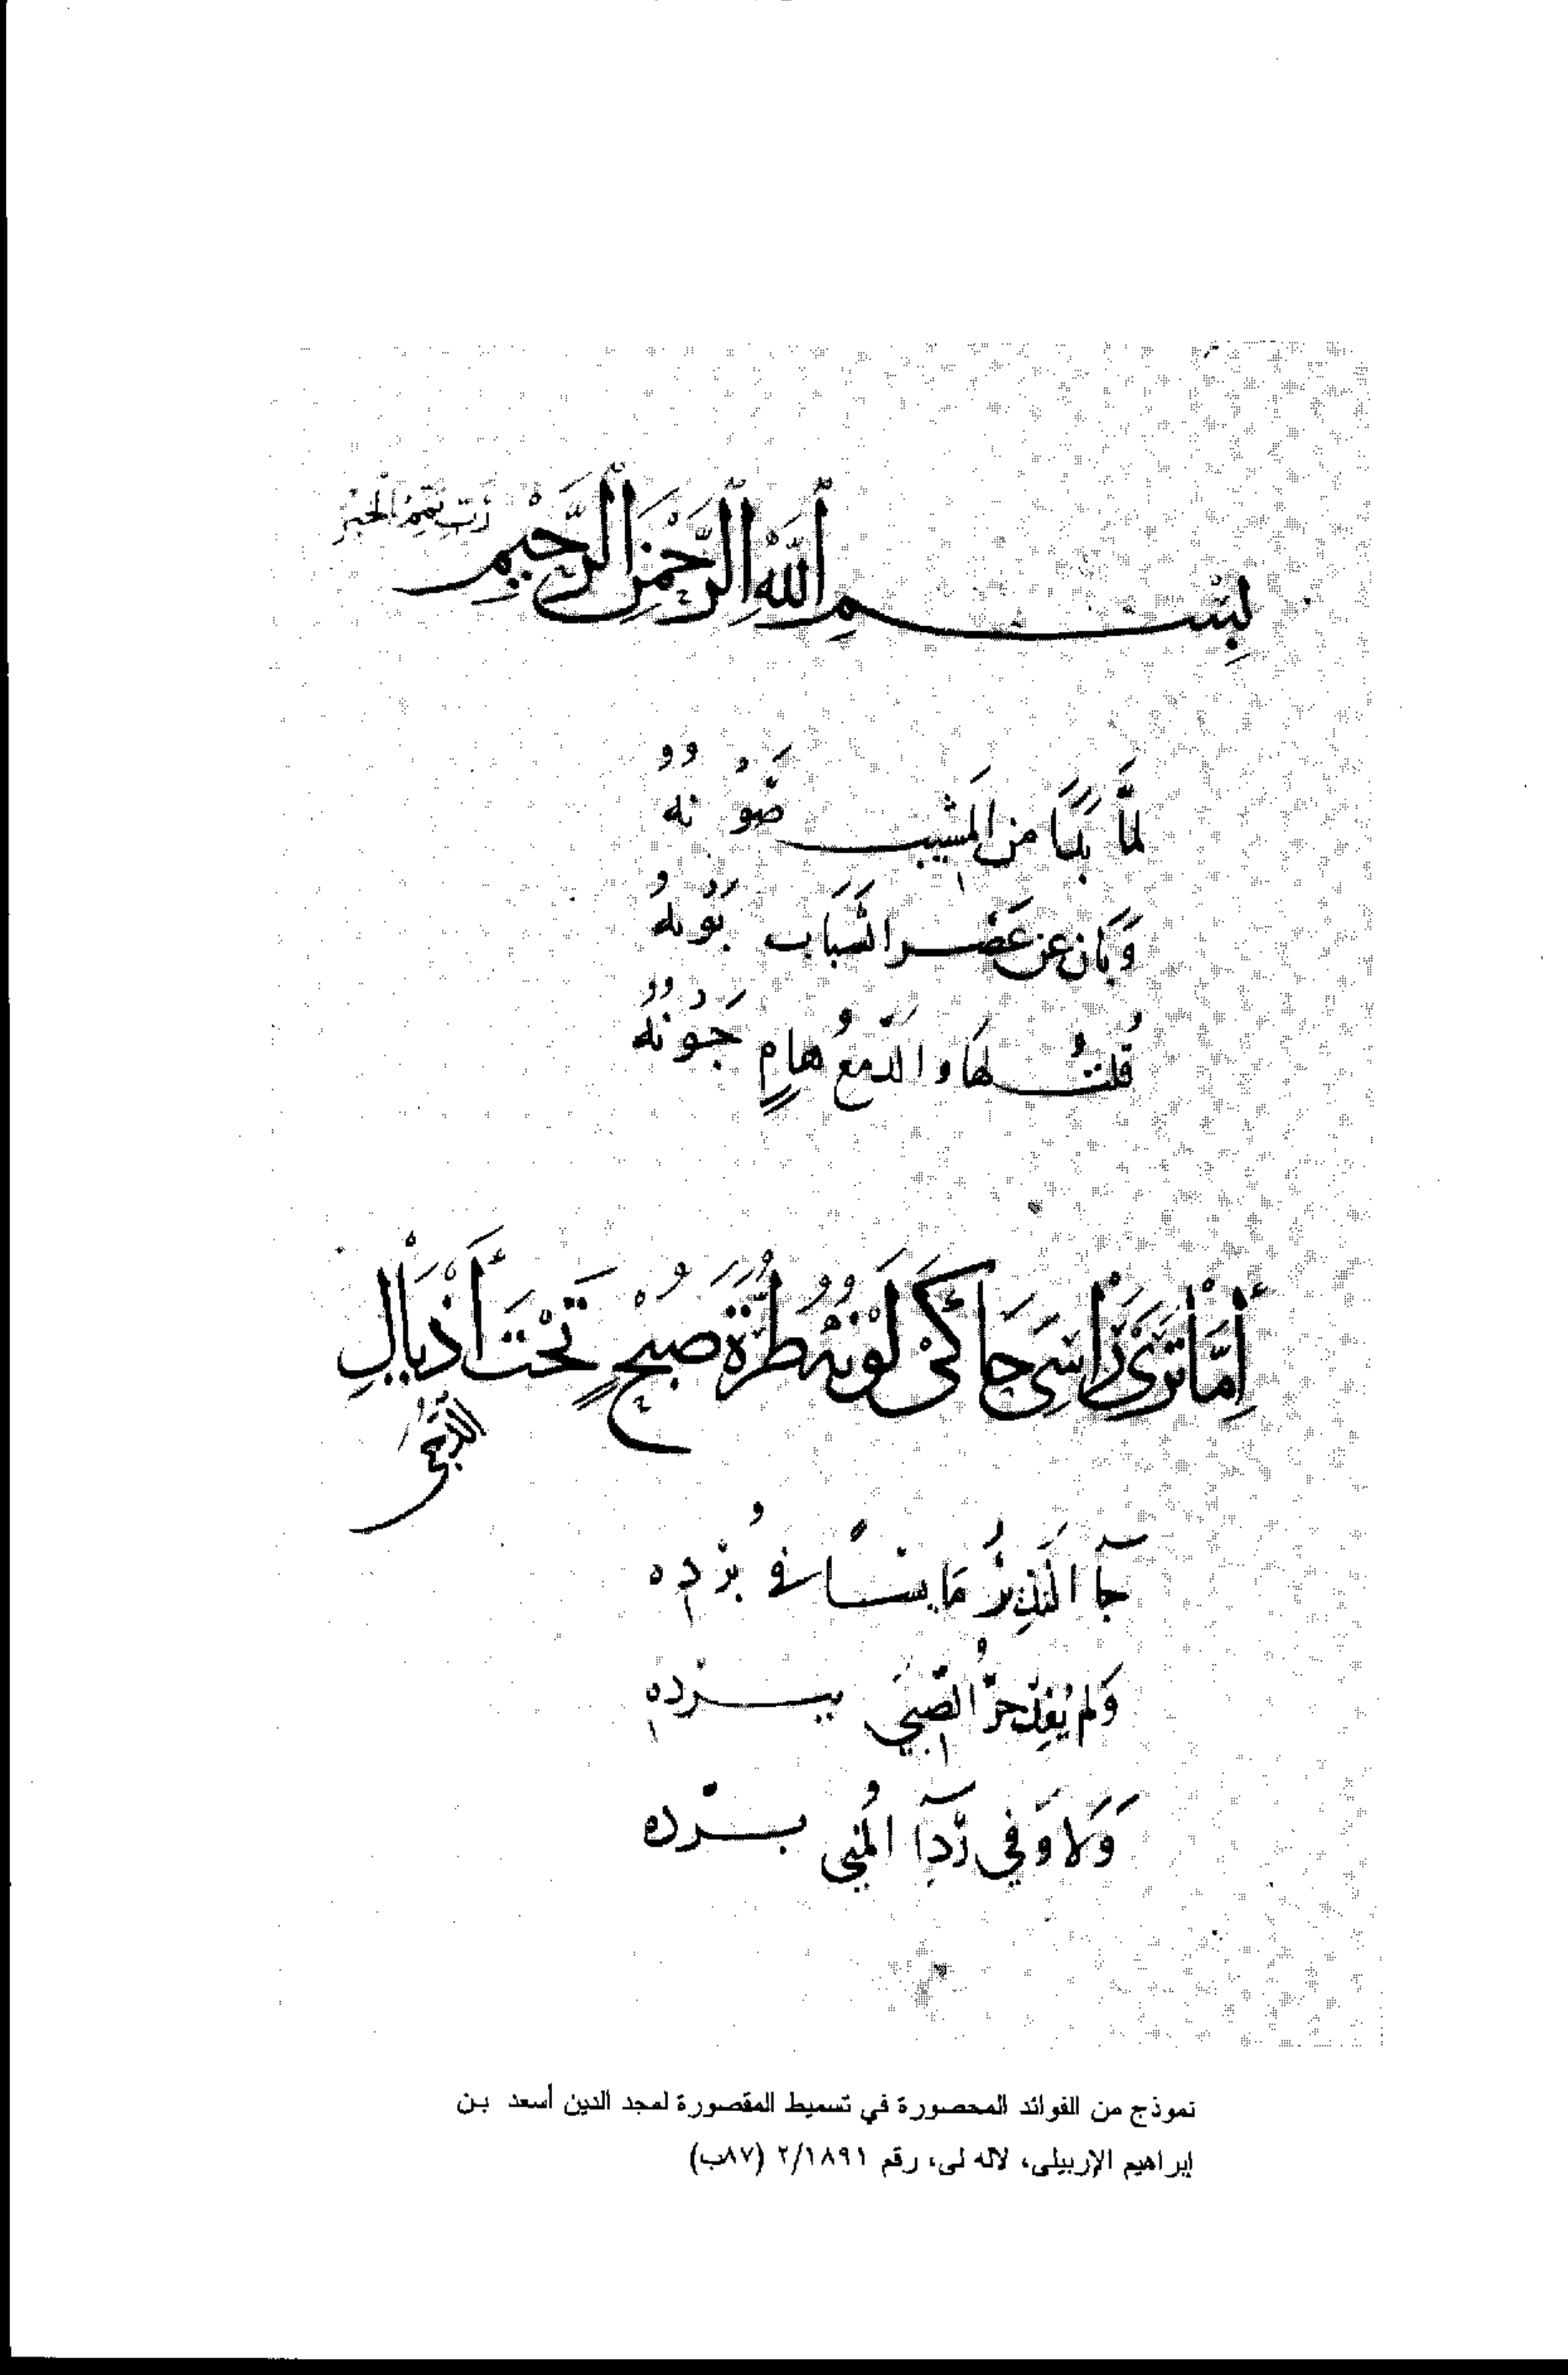 بِسْمِ اللهِ الرَّحْمٰنِ الرَّحِيْمِ رَبِّ تَمِّمْ بِالْخَيْرِ
لمَّا بَدَا مِنَ المَشِيبِ ضَوْنُهُ
وَبَانَ عَن عَصْرِ الشَّبَابِ بَوْنُهُ
قُلتُ لهَا وَالدَّمعُ هَامٍ جَوْنُهُ
إِمَّا تَرَيْ رَأْسِي حَاكَى لَوْنُهُ طُرَّةَ صُبْحٍ تَحْتَ أَذْيَالِ
الدُّجَى
جآ النَّذِيرُ مَا في بُرْدِهِ
وَلم يُفِدْ حَرُّ بِبَرْدِهِ
وَلَا وَفي رَدِآ المُنى بِرَدِّهِ
نموذج من الفوائد المحصورة في تسميط المقصورة لمجد الدين أسعد بن
إبراهيم الإربيلى، لاله لى، رقم ٢/١٨٩١ (٨٧ب)